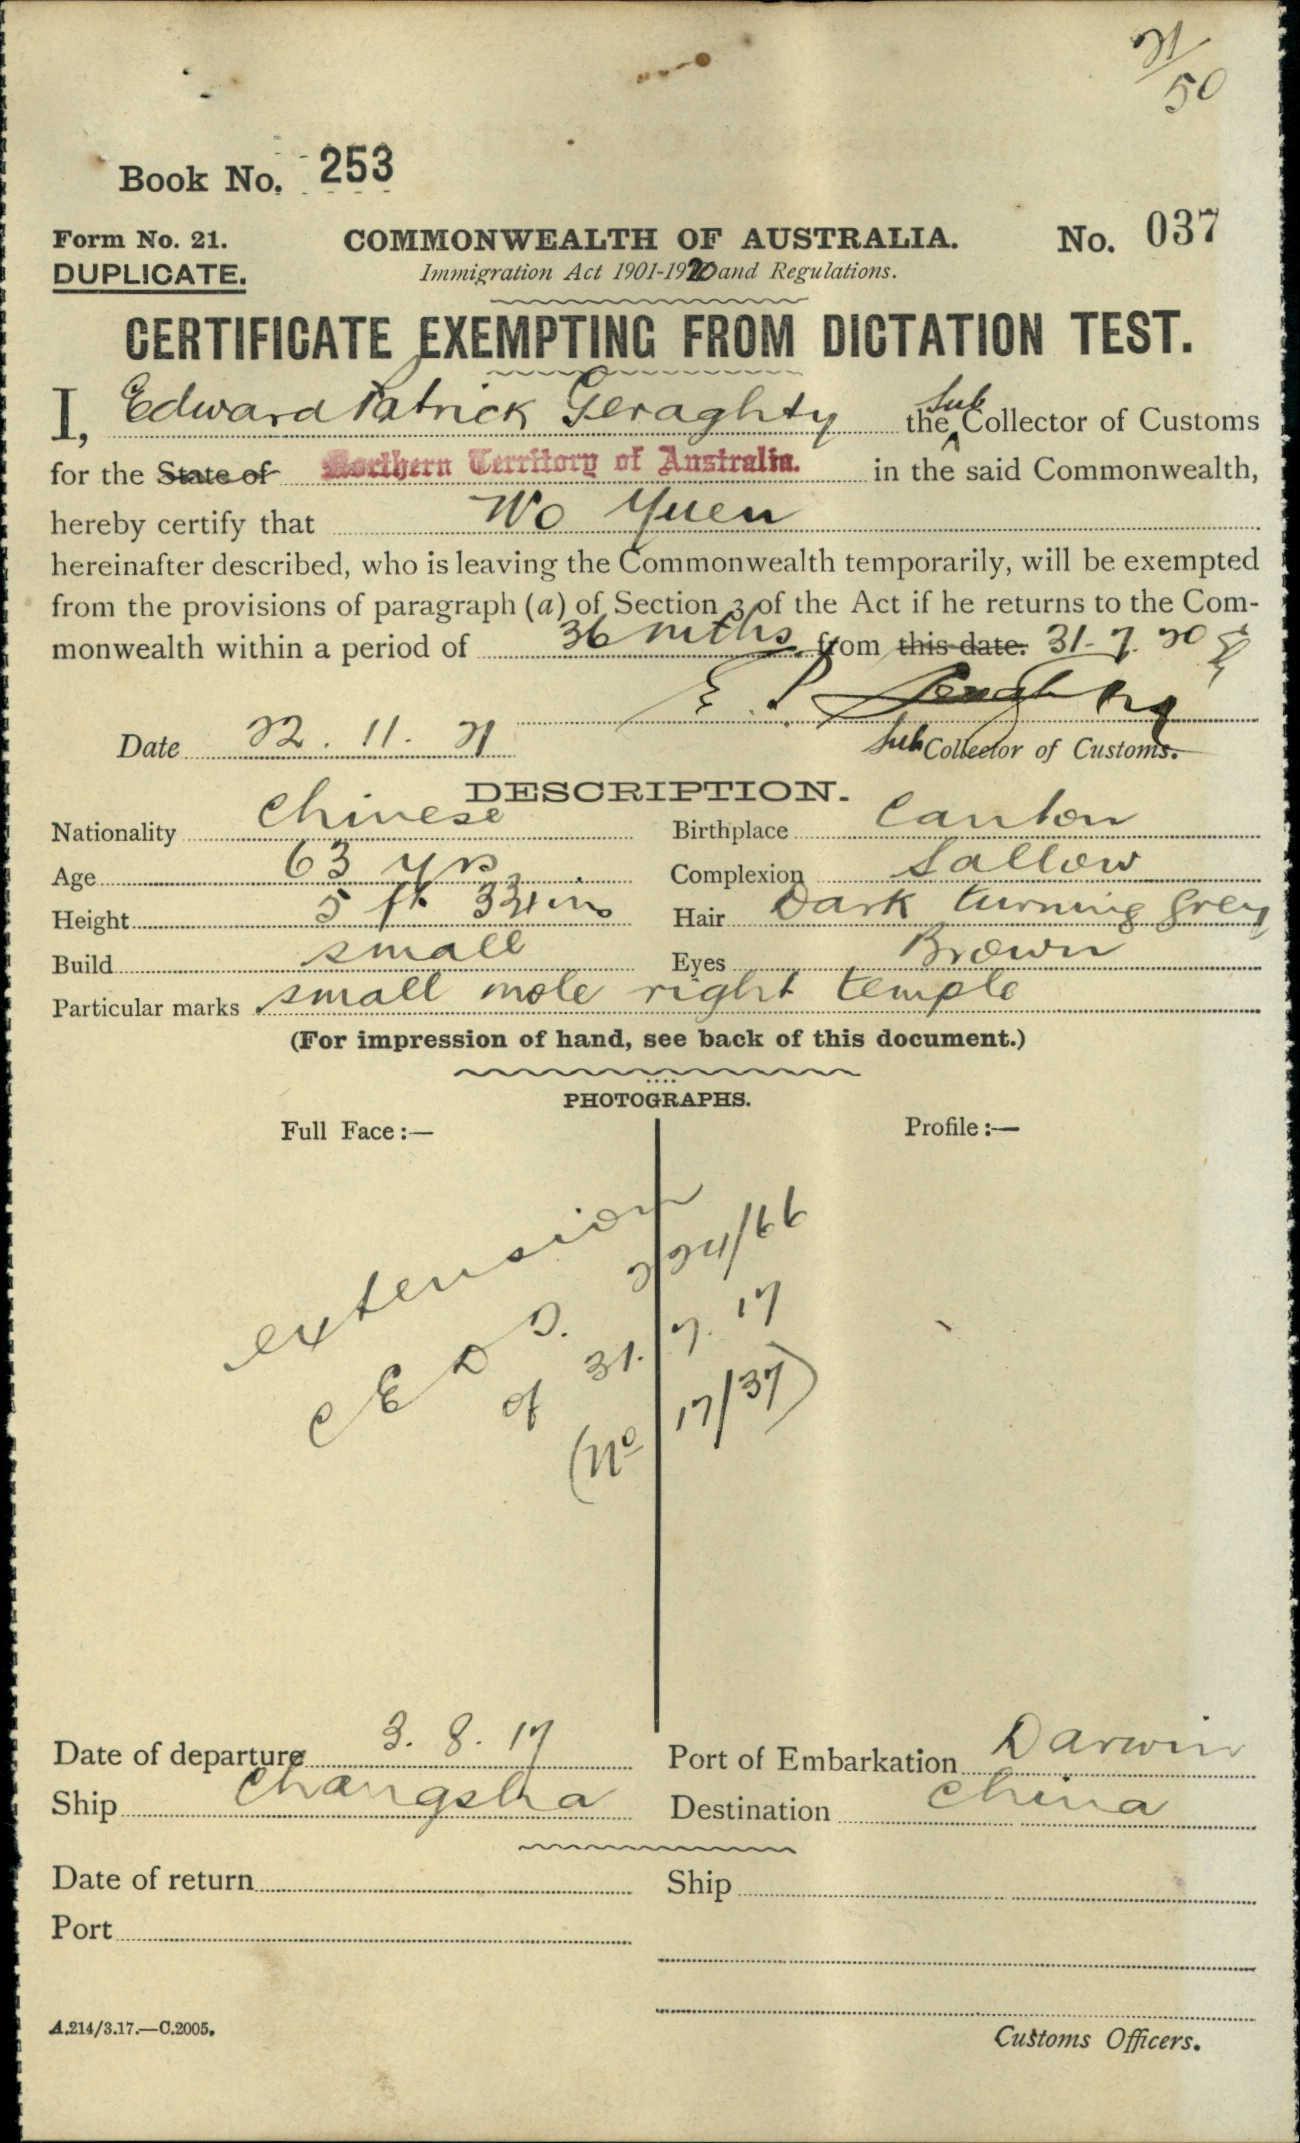 21/50
Book No. 253
Form No. 21. COMMONWEALTH OF AUSTRALIA. No. 037
DUPLICATE. Immigration Act 1901-1920 and Regulations.
CERTIFICATE EXEMPTING FROM DICTATION TEST.
I, Edward Patrick Geraghty the Sub Collector of Customs
for the State of Northern Territory of Australia. in the said Commonwealth,
hereby certify that Wo Yuen
hereinafter described, who is leaving the Commonwealth temporarily, will be exempted
from the provisions of paragraph (a) of Section 3 of the Act if he returns to the Com-
monwealth within a period of 36 mths from this date. 31-7.20
E. P. Geraghty
Date 22.11.21 Sub Collector of Customs.
DESCRIPTION.
Nationality Chinese Birthplace Canton
Age 63 yrs Complexion Sallow
Height 5 ft 3¾ ins Hair Dark turning grey
Build small Eyes Brown
Particular marks small mole right temple
(For impression of hand, see back of this document.)
PHOTOGRAPHS.
Full Face:— Profile:—
extension
C E D D. 224/66
of 31. 7. 17
(No 17/37)
Date of departure 3. 8. 17 Port of Embarkation Darwin
Ship Changsha Destination China
Date of return Ship
Port
A.214/3.17.—C.2005.
Customs Officers.